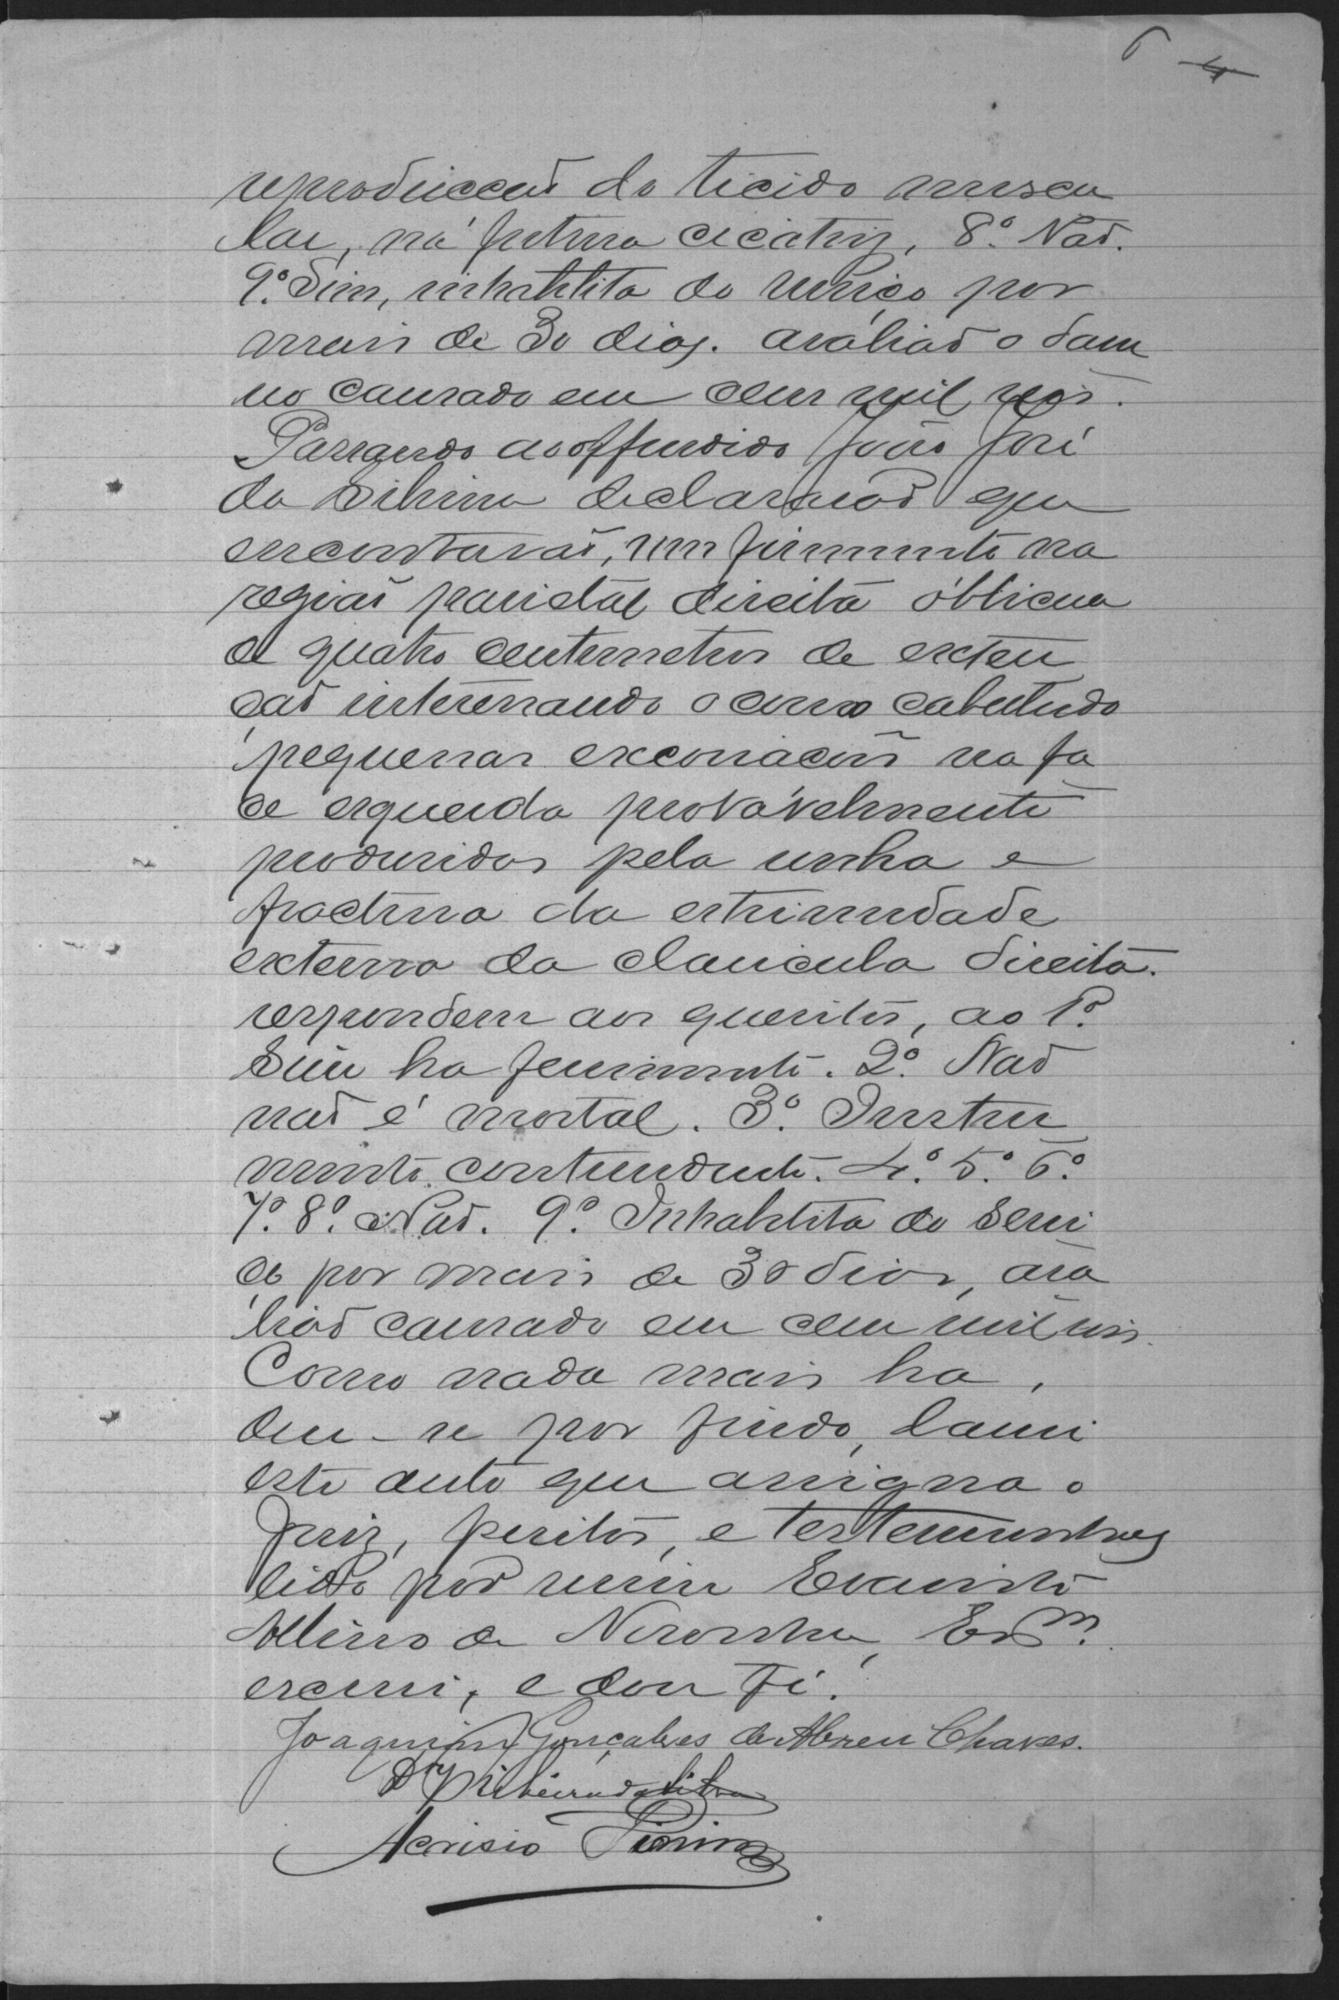 6 4
reproducção do ticido muscu
lar, na futura cicatriz, 8.º Não.
9.º Sim, inhabilita do serviço por
mais de 30 dias. avaliaõ o dam
no causado em cem mil reis.
Passando ao offendido João José
da Silvina declararaõ que
encontaraõ, um firimento na
regiaõ parietal direita óblicua
de quatro centimetros de exten
çaõ interessando o couro cabelludo
pequenas excoriacoẽs na fa
ce esquerda provávelmente
produsidas pela unha e
fractura da estrimidade
externa da clavicula direita.
respondem aos quesitos, ao 1.º
Sim ha ferimento. 2.º Naõ
naõ é mortal. 3.º Instru
mento contundente. 4.º 5.º 6.º
7.º 8.º Naõ. 9.º Inhabilita do servi
ço por mais de 30 dias, ava
liaõ causado em cem mil reis.
Como nada mais ha,
deu-se por findo, lavrei
este auto que assigna o
Juiz, peritos, e testemunhas
lido por mim Evaristo
Albino de Noronha, Esm.
escrevi, e dou fé.
Joaquim Gonçalves de Abreu Chaves.
Dr Ribeiro da Silva
Acrisio